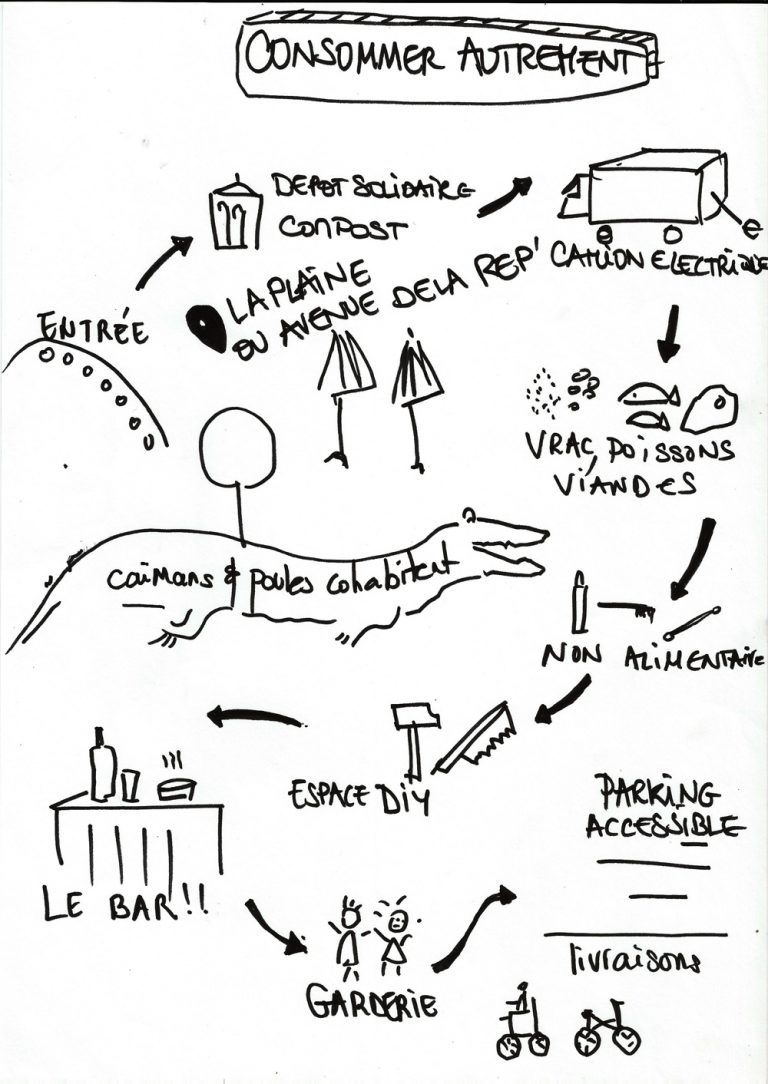 CONSOMMER AUTREMENT
DEPOT SOLIDAIRE
COMPOST
ENTRÉE
LA PLAINE
OU AVENUE DE LA REP'
CAMION ELECTRIQUE
VRAC, POISSONS
VIANDES
caïmans & poules cohabitent
NON ALIMENTAIRE
ESPACE DiY
PARKING
ACCESSIBLE
LE BAR!!
livraisons
GARDERIE